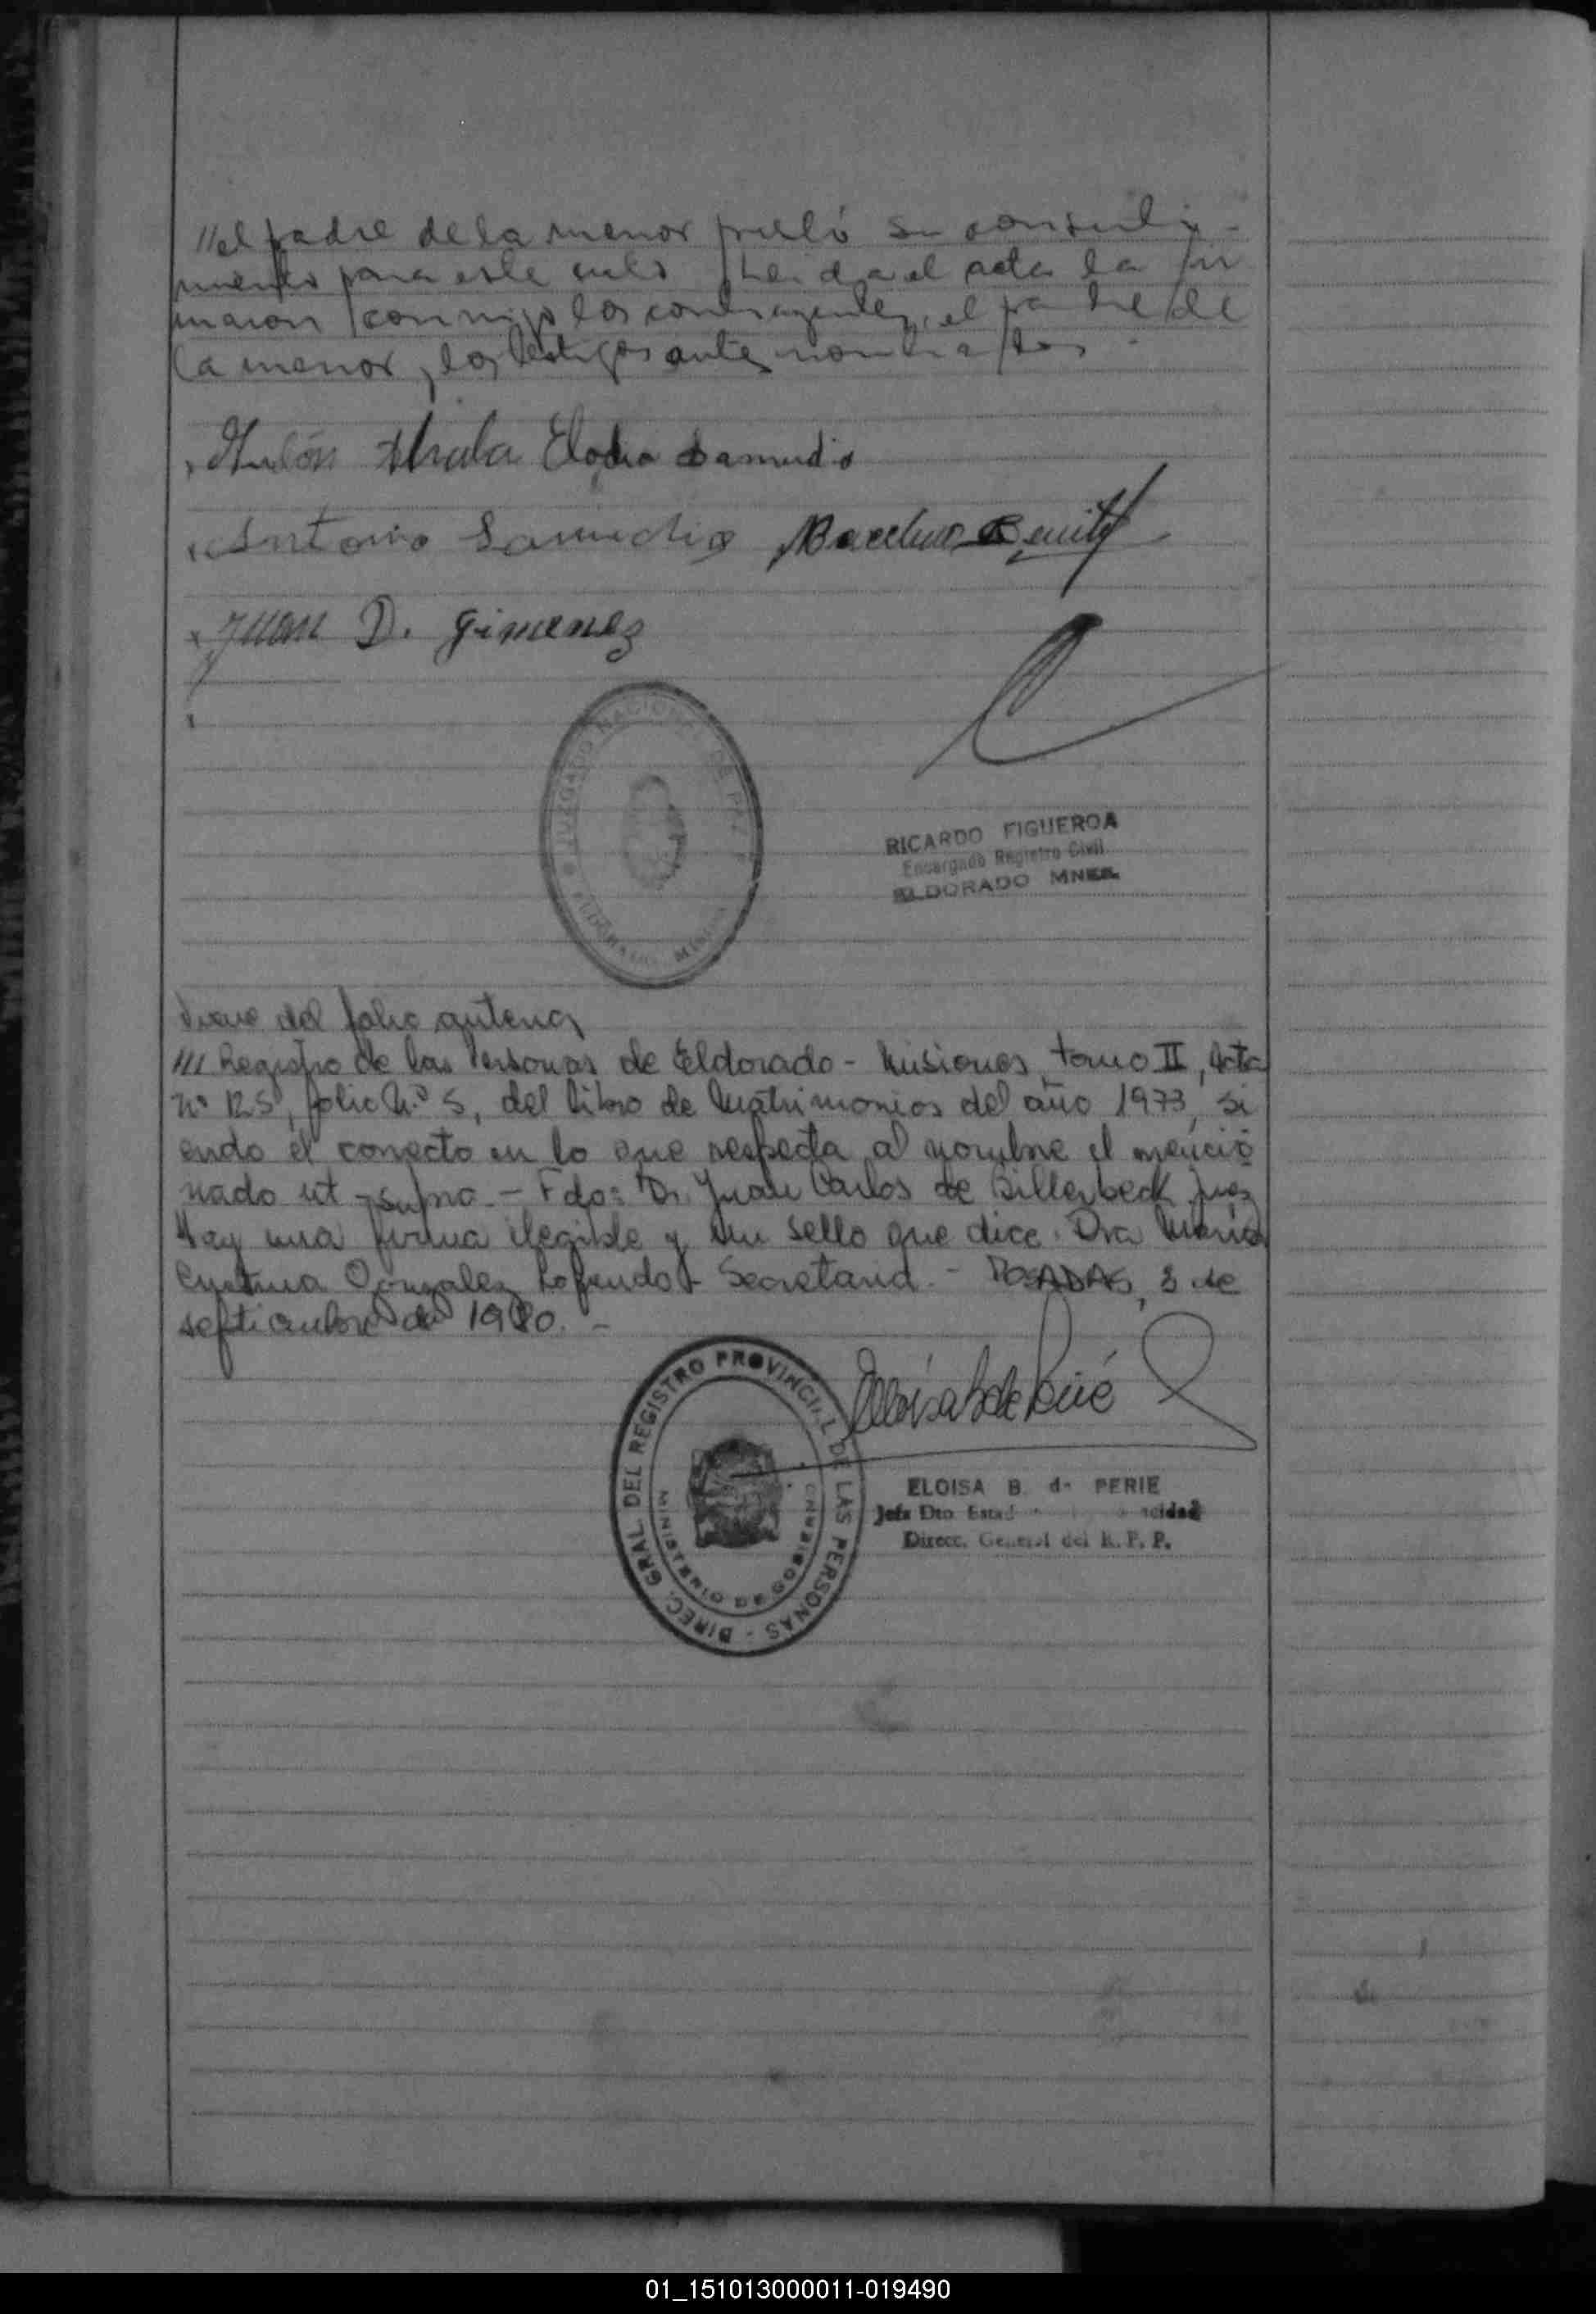 //el padre de la menor prestó su consenti-
miento para este acto. Leida el acta la fir
maron conmigo los contrayentes, el padre de
la menor y los testigos antes nombrados.-
Elodia Samudio
Antonio Samudio Benitez
Juan D. Gimenez
JUZGADO NACIONAL DE PAZ
ELDORADO MISIONES
RICARDO FIGUEROA
Encargado Registro Civil
ELDORADO MNES.
Viene del folio anterior
/// Registro de las Personas de Eldorado - Misiones, tomo II, Acta
Nº 125, folio Nº 5, del libro de Matrimonios del año 1973, si
endo el correcto en lo que respecta al nombre el mencio
nado ut-supra.- Fdo: Dr. Juan Carlos de Billerbeck Juez
Hay una firma ilegible y un sello que dice: Dra María
Cristina Gonzalez Secretaria.- POSADAS, 3 de
septiembre de 1980.-
DIREC. GRAL. DEL REGISTRO PROVINCIAL DE LAS PERSONAS -
MINISTERIO DE GOBIERNO
ELOISA B. de PERIE
Jefa Dto. Estad acidad
Direcc. General del R. P. P.
01_151013000011-019490